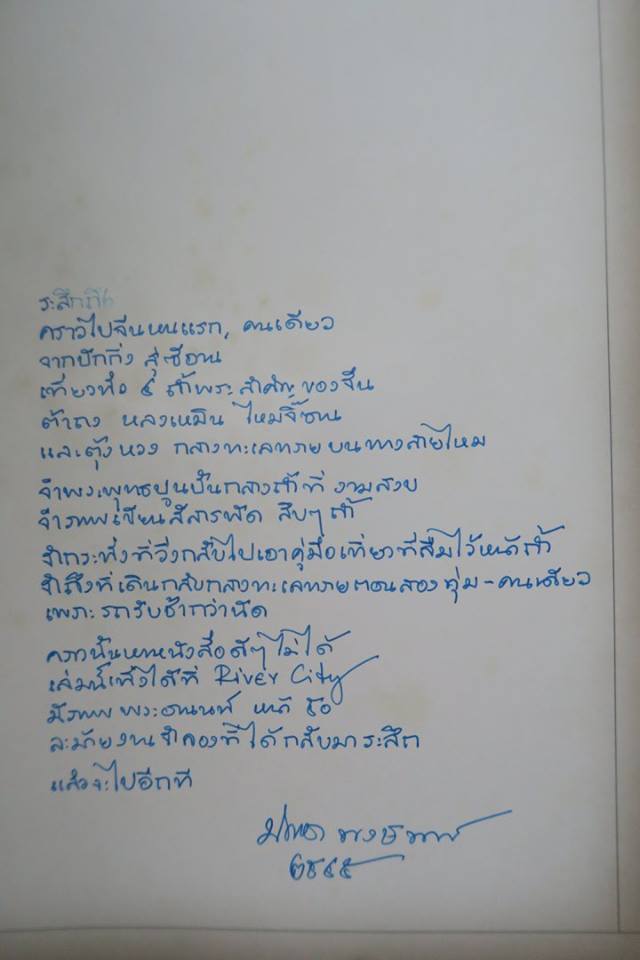 ระลึกถึง
คราวไปจีนหนแรก, คนเดียว
จากปักกิ่ง สู่ซีอาน
เที่ยวทั้ง ๔ ถ้ำพระสำคัญของจีน
ต้าถง หลงเหมิน ไหมจี๊ซาน
และตุ้งหวง กลางทะเลทรายบนทางสายไหม
จำพระพุทธปูนปั้นกลางถ้ำที่ งามสงบ
จำภาพเขียนสีสารพัด สิบๆ ถ้ำ
จำกระทั่งที่วิ่งกลับไปเอาคู่มือเที่ยวที่ลืมไว้หน้าถ้ำ
จำถึงที่เดินกลับกลางทะเลทรายตอนสองทุ่ม-คนเดียว
เพราะรถรับช้ากว่านัด
คราวนั้นหาหนังสือดีๆ ไม่ได้
เล่มนี้เพิ่งได้ที่ River City
มีภาพพระอานนท์ หน้า ๕๐
ละม้ายงานจำลองที่ได้กลับมาระลึก
แล้วจะไปอีกที
๒๕๔๕